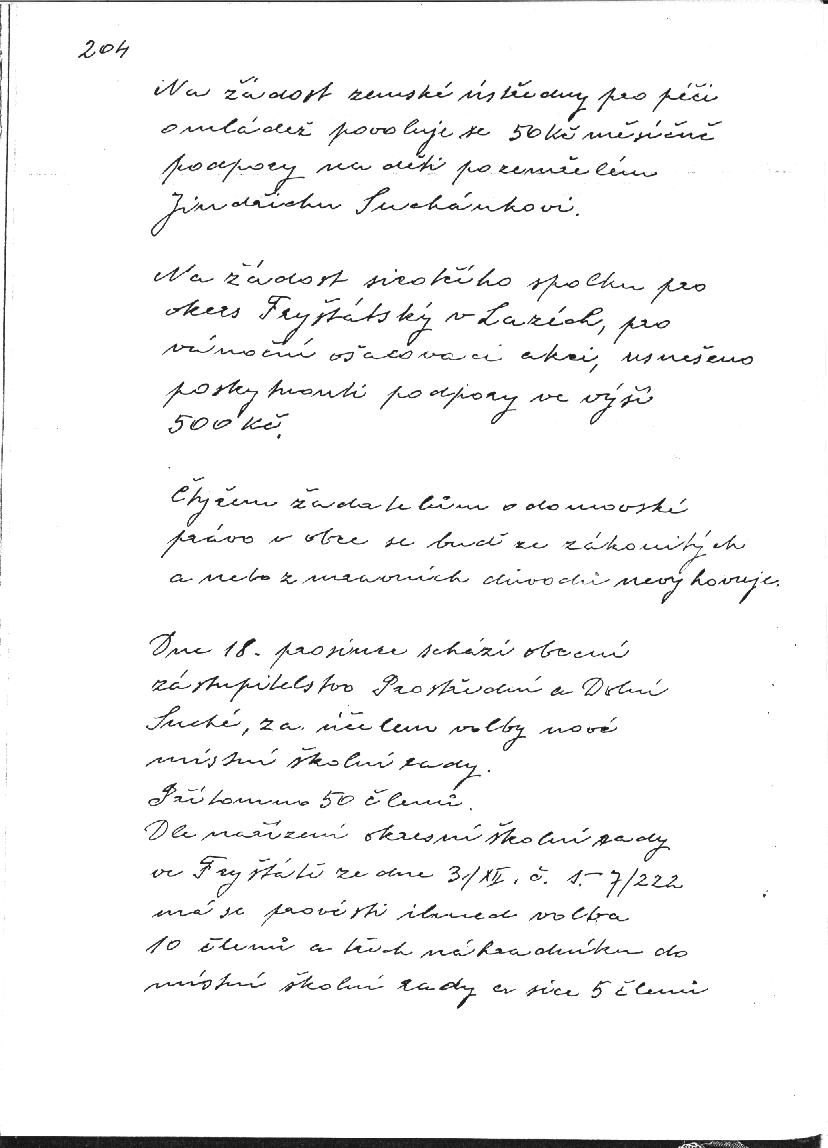 204
Na žádost zemské ústředny pro péči
o mládež povoluje se 50 Kč měsíčně
podpory na děti po zemřelém
Jindřichu Suchánkovi.
Na žádost sirotčího spolku pro
okres Fryštátský v Lazích, pro
vánoční ošacovací akci, usnešeno
poskytnouti podpory ve výši
500 Kč.
Čtyřem žadatelům o domovské
právo v obci se buď ze zákonitých
a nebo z mravních důvodů nevyhovuje.
Dne 18. prosince schází obecní
zástupitelstvo Prostřední a Dolní
Suché, za účelem volby nové
místní školní rady.
Přítomno 50 členů.
Dle nařízení okresní školní rady
ve Fryštátě ze dne 3./XII. č. 1.-7/222
má se provésti ihned volba
10 členů a těch náhradníků do
místní školní rady a sice 5 členů